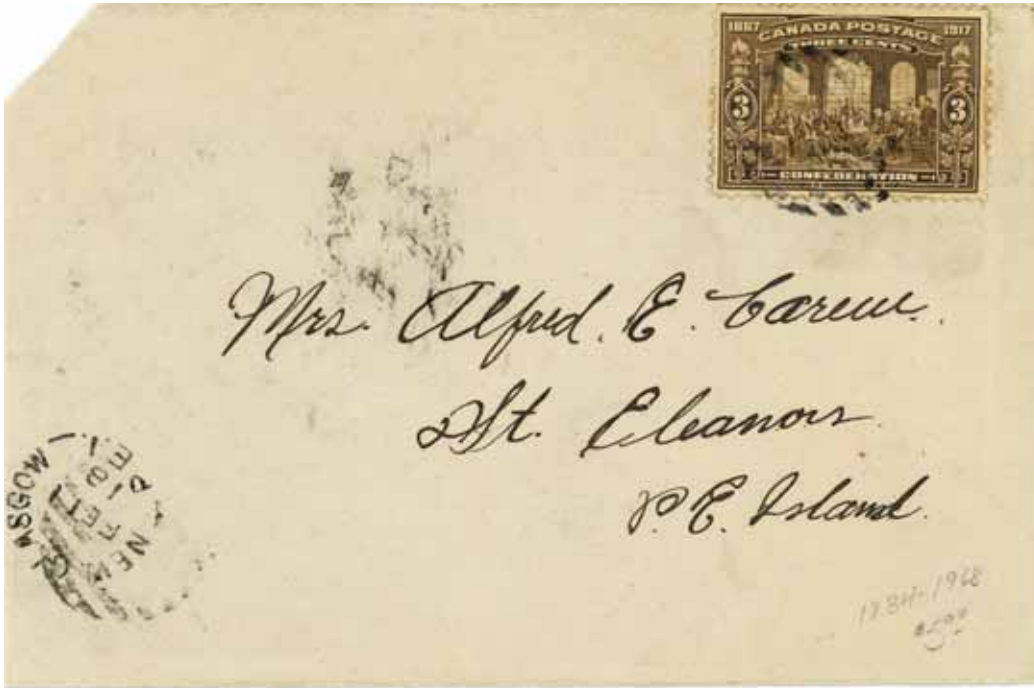 1867 CANADA POSTAGE 1917
THREE CENTS
3 3
CONFEDERATION
Mrs. Alfred. E. Carew.
St. Eleanors
P. E. Island.
NEW GLASGOW
FE
18
P E I
1884-1968